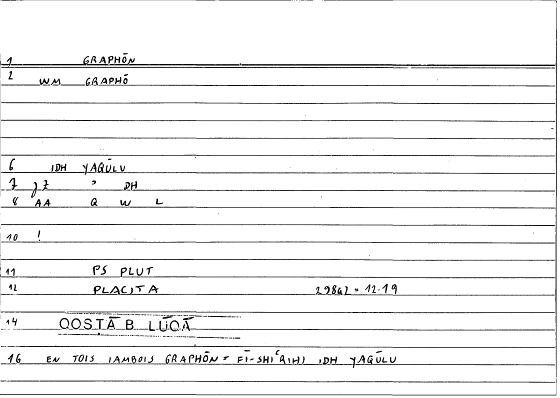 1 GRAPHŌN
2 WM GRAPHŌ
6 IDH YAQŪLU
7 ʾ DH
8 AA Q W L
10 !
11 PS PLUT
12 PLACITA 298a2 - 12.19
14 QOSṬĀ B. LŪQĀ
16 EN TOIS IAMBOIS GRAPHŌN = FĪ-SHIʿRIHI IDH YAQŪLU